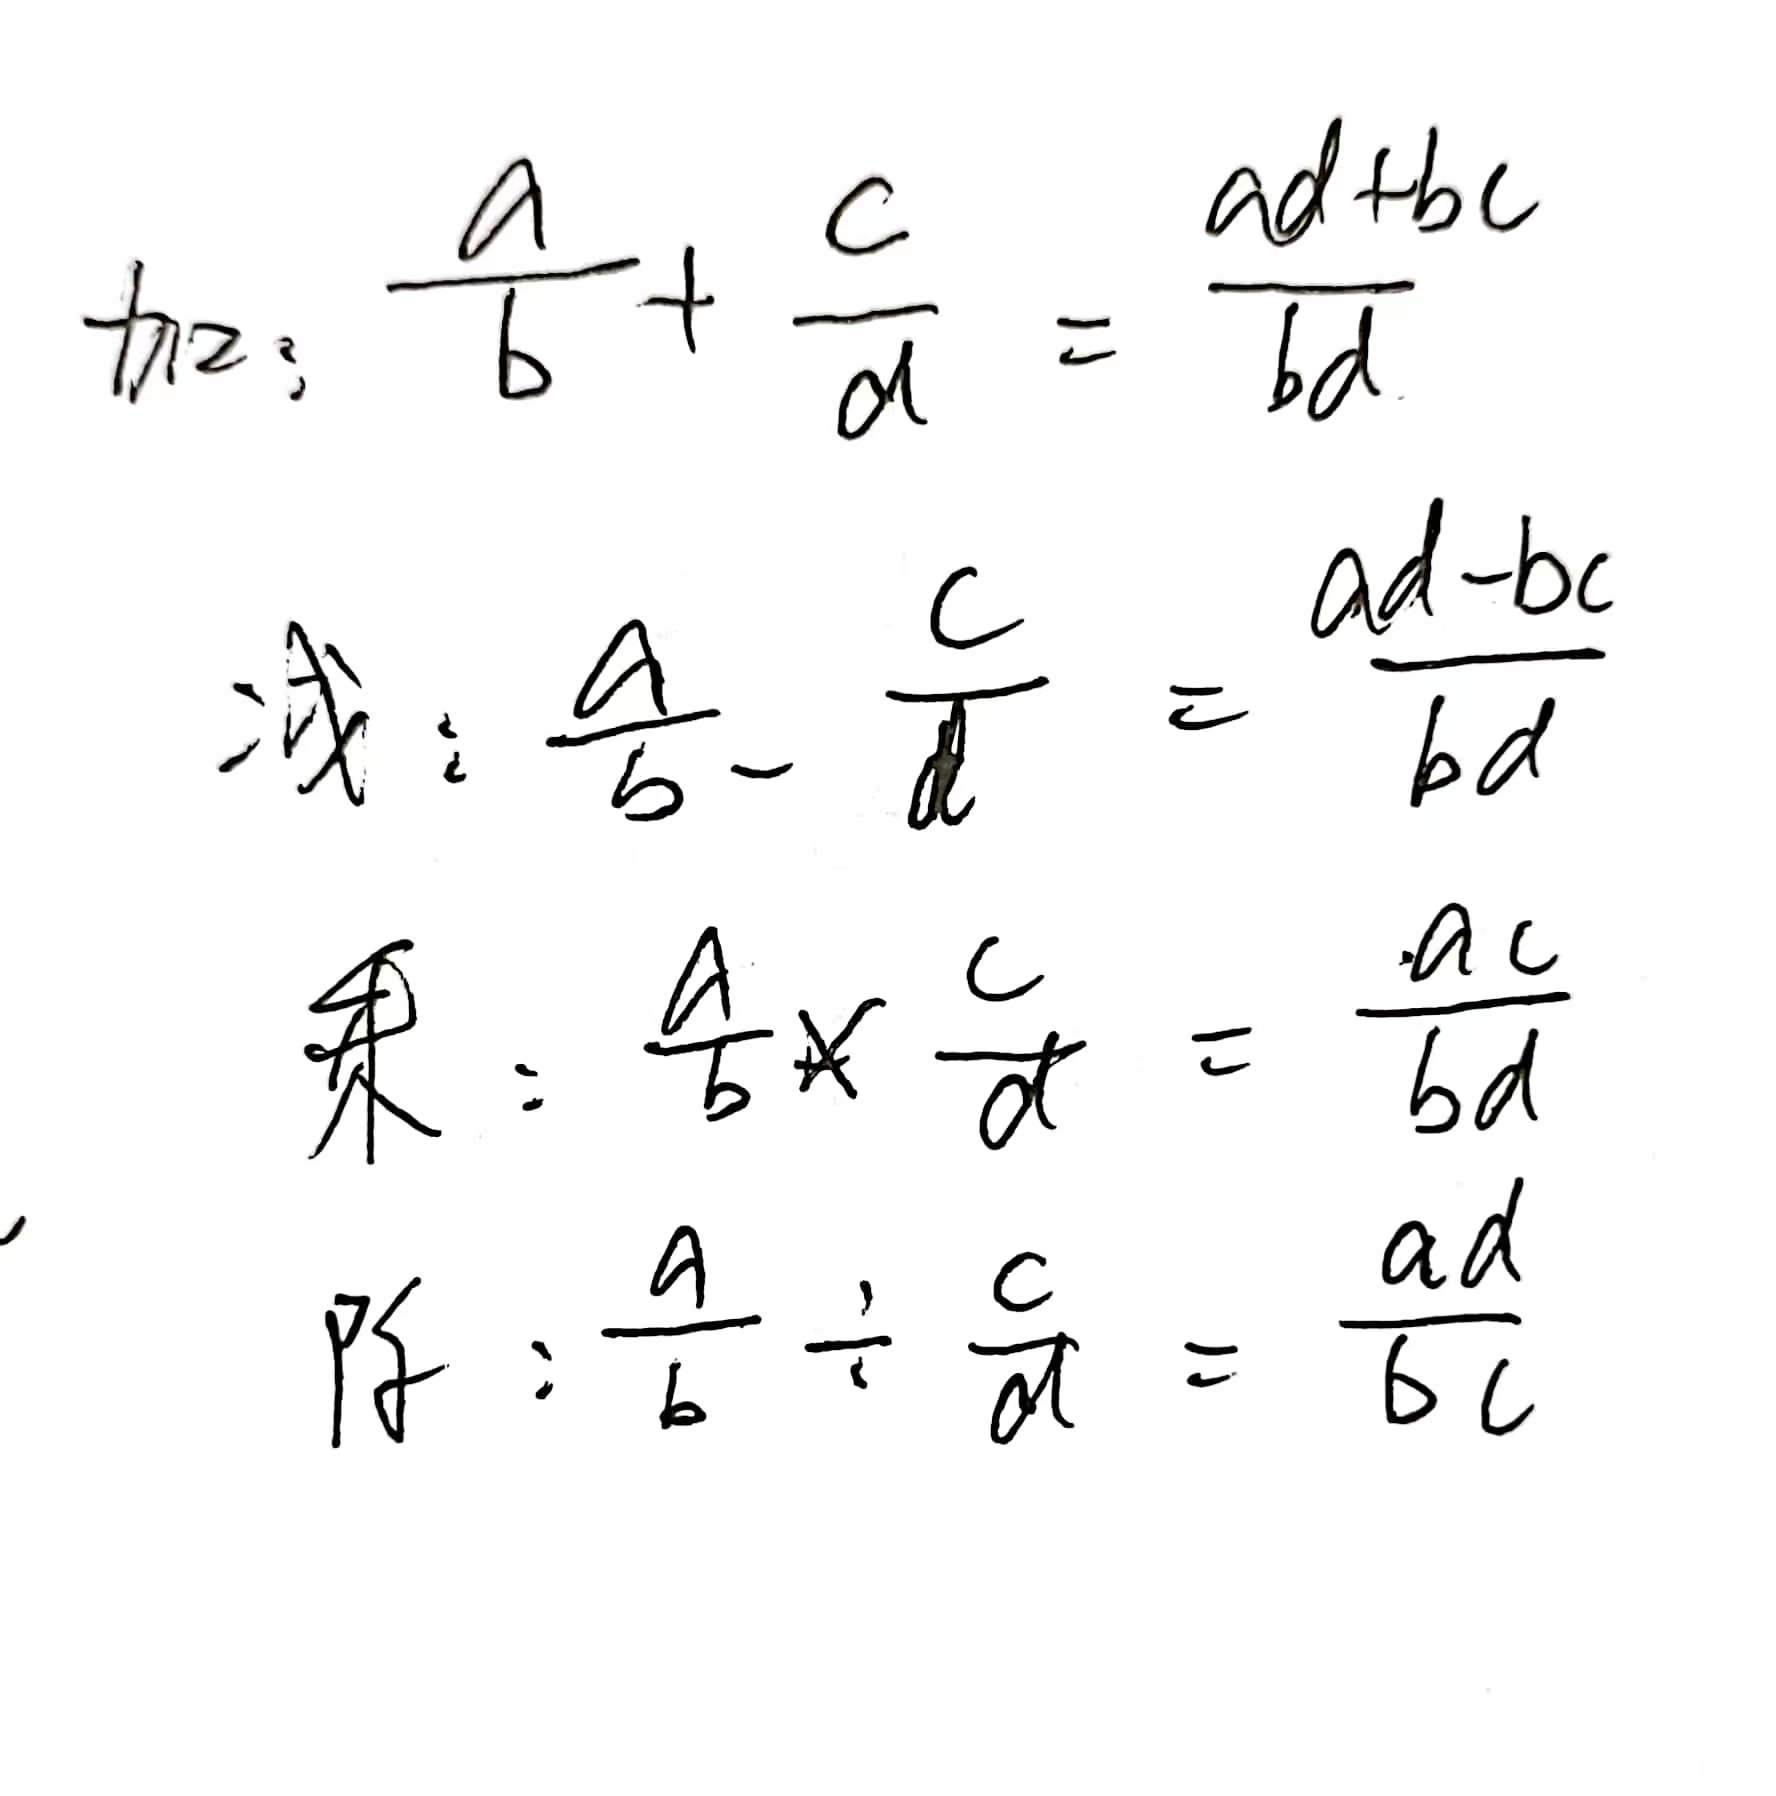 加: a/b + c/d = ad+bc/bd
减: a/b - c/d = ad-bc/bd
乘: a/b × c/d = ac/bd
除: a/b ÷ c/d = ad/bc